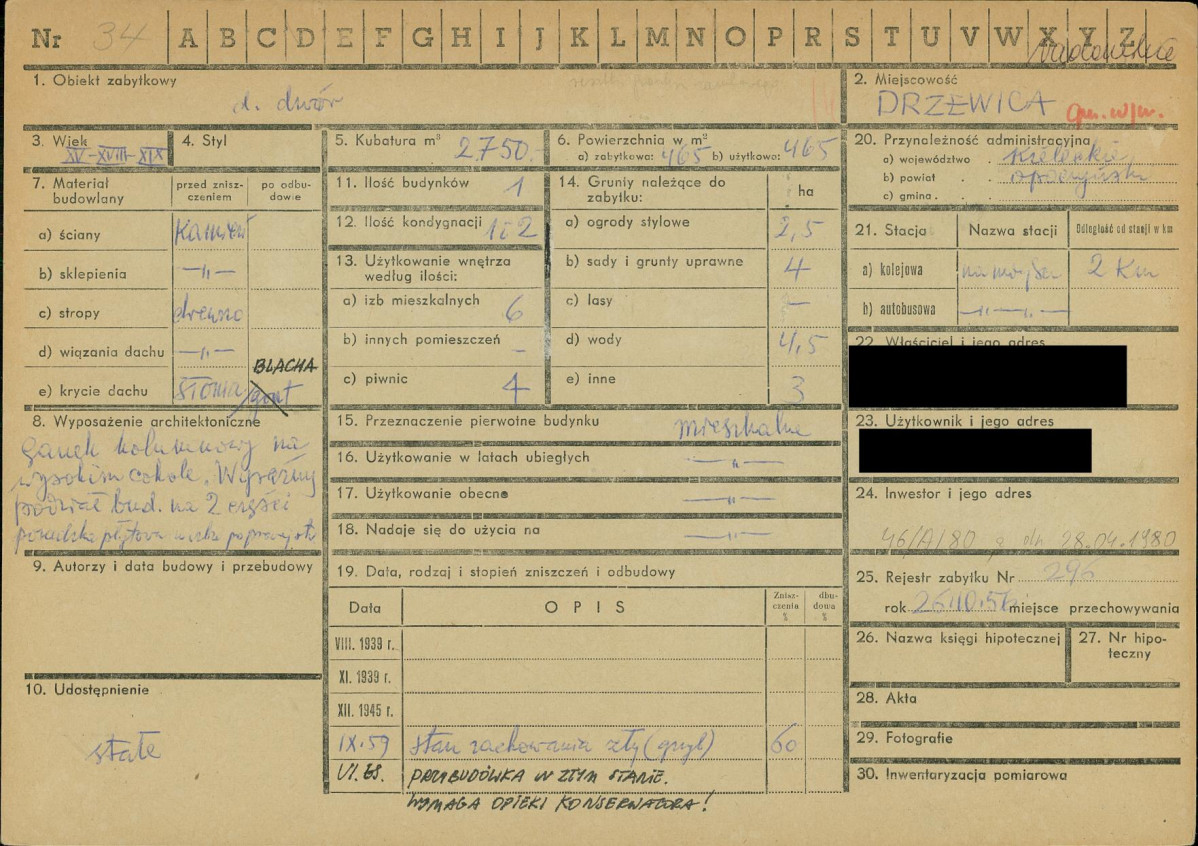 Nr 34 A B C D E F G H I J K L M N O P R S T U V W X Y Z
1. Obiekt zabytkowy
d. dwór
2. Miejscowość
DRZEWICA gm. w/m.
3. Wiek
XV-XVIII-XIX
4. Styl
5. Kubatura m³ 2750.-
6. Powierzchnia w m²
a) zabytkowa: 465 b) użytkowa: 465
20. Przynależność administracyjna
a) województwo . kieleckie
b) powiat . . opoczyński
c) gmina . . .
7. Materiał budowlany
przed zniszczeniem
po odbudowie
a) ściany Kamień
b) sklepienia —"—
c) stropy drewno
d) wiązania dachu —"—
e) krycie dachu słoma gont BLACHA
11. Ilość budynków 1
12. Ilość kondygnacji 1 i 2
13. Użytkowanie wnętrza według ilości:
a) izb mieszkalnych 6
b) innych pomieszczeń -
c) piwnic 4
14. Grunty należące do zabytku: ha
a) ogrody stylowe 2,5
b) sady i grunty uprawne 4
c) lasy —
d) wody 4,5
e) inne 3
21. Stacja Nazwa stacji Odległość od stacji w km
a) kolejowa na miejscu 2 Km
b) autobusowa —"— —"—
22. Właściciel i jego adres
23. Użytkownik i jego adres
24. Inwestor i jego adres
8. Wyposażenie architektoniczne
ganek kolumnowy na
wysokim cokole. Wyraźny
podział bud. na 2 części
posadzka płytowa
15. Przeznaczenie pierwotne budynku mieszkalne
16. Użytkowanie w latach ubiegłych —"—
17. Użytkowanie obecne —"—
18. Nadaje się do użycia na —"—
46/A/80 z dn. 28.04.1980
25. Rejestr zabytku Nr 296
rok 26.10.56 miejsce przechowywania
9. Autorzy i data budowy i przebudowy
19. Data, rodzaj i stopień zniszczeń i odbudowy
Data OPIS Zniszczenia % dbudowa %
VIII. 1939 r.
XI. 1939 r.
XII. 1945 r.
IX.59 stan zachowania zły (grzyb) 60
VI. 68. PRZYBUDÓWKA W ZŁYM STANIE.
WYMAGA OPIEKI KONSERWATORA!
26. Nazwa księgi hipotecznej
27. Nr hipoteczny
10. Udostępnienie
stałe
28. Akta
29. Fotografie
30. Inwentaryzacja pomiarowa